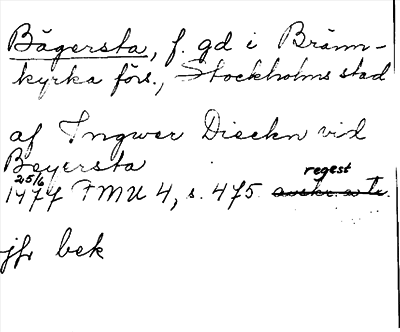 Bägersta, f. gd i Bränn-
kyrka förs., Stockholms stad
af Ingwer Dieckn vid
Beyersta
25/6 regest
1477 FMU 4, s. 475 avskr. o tr.
jfr bek